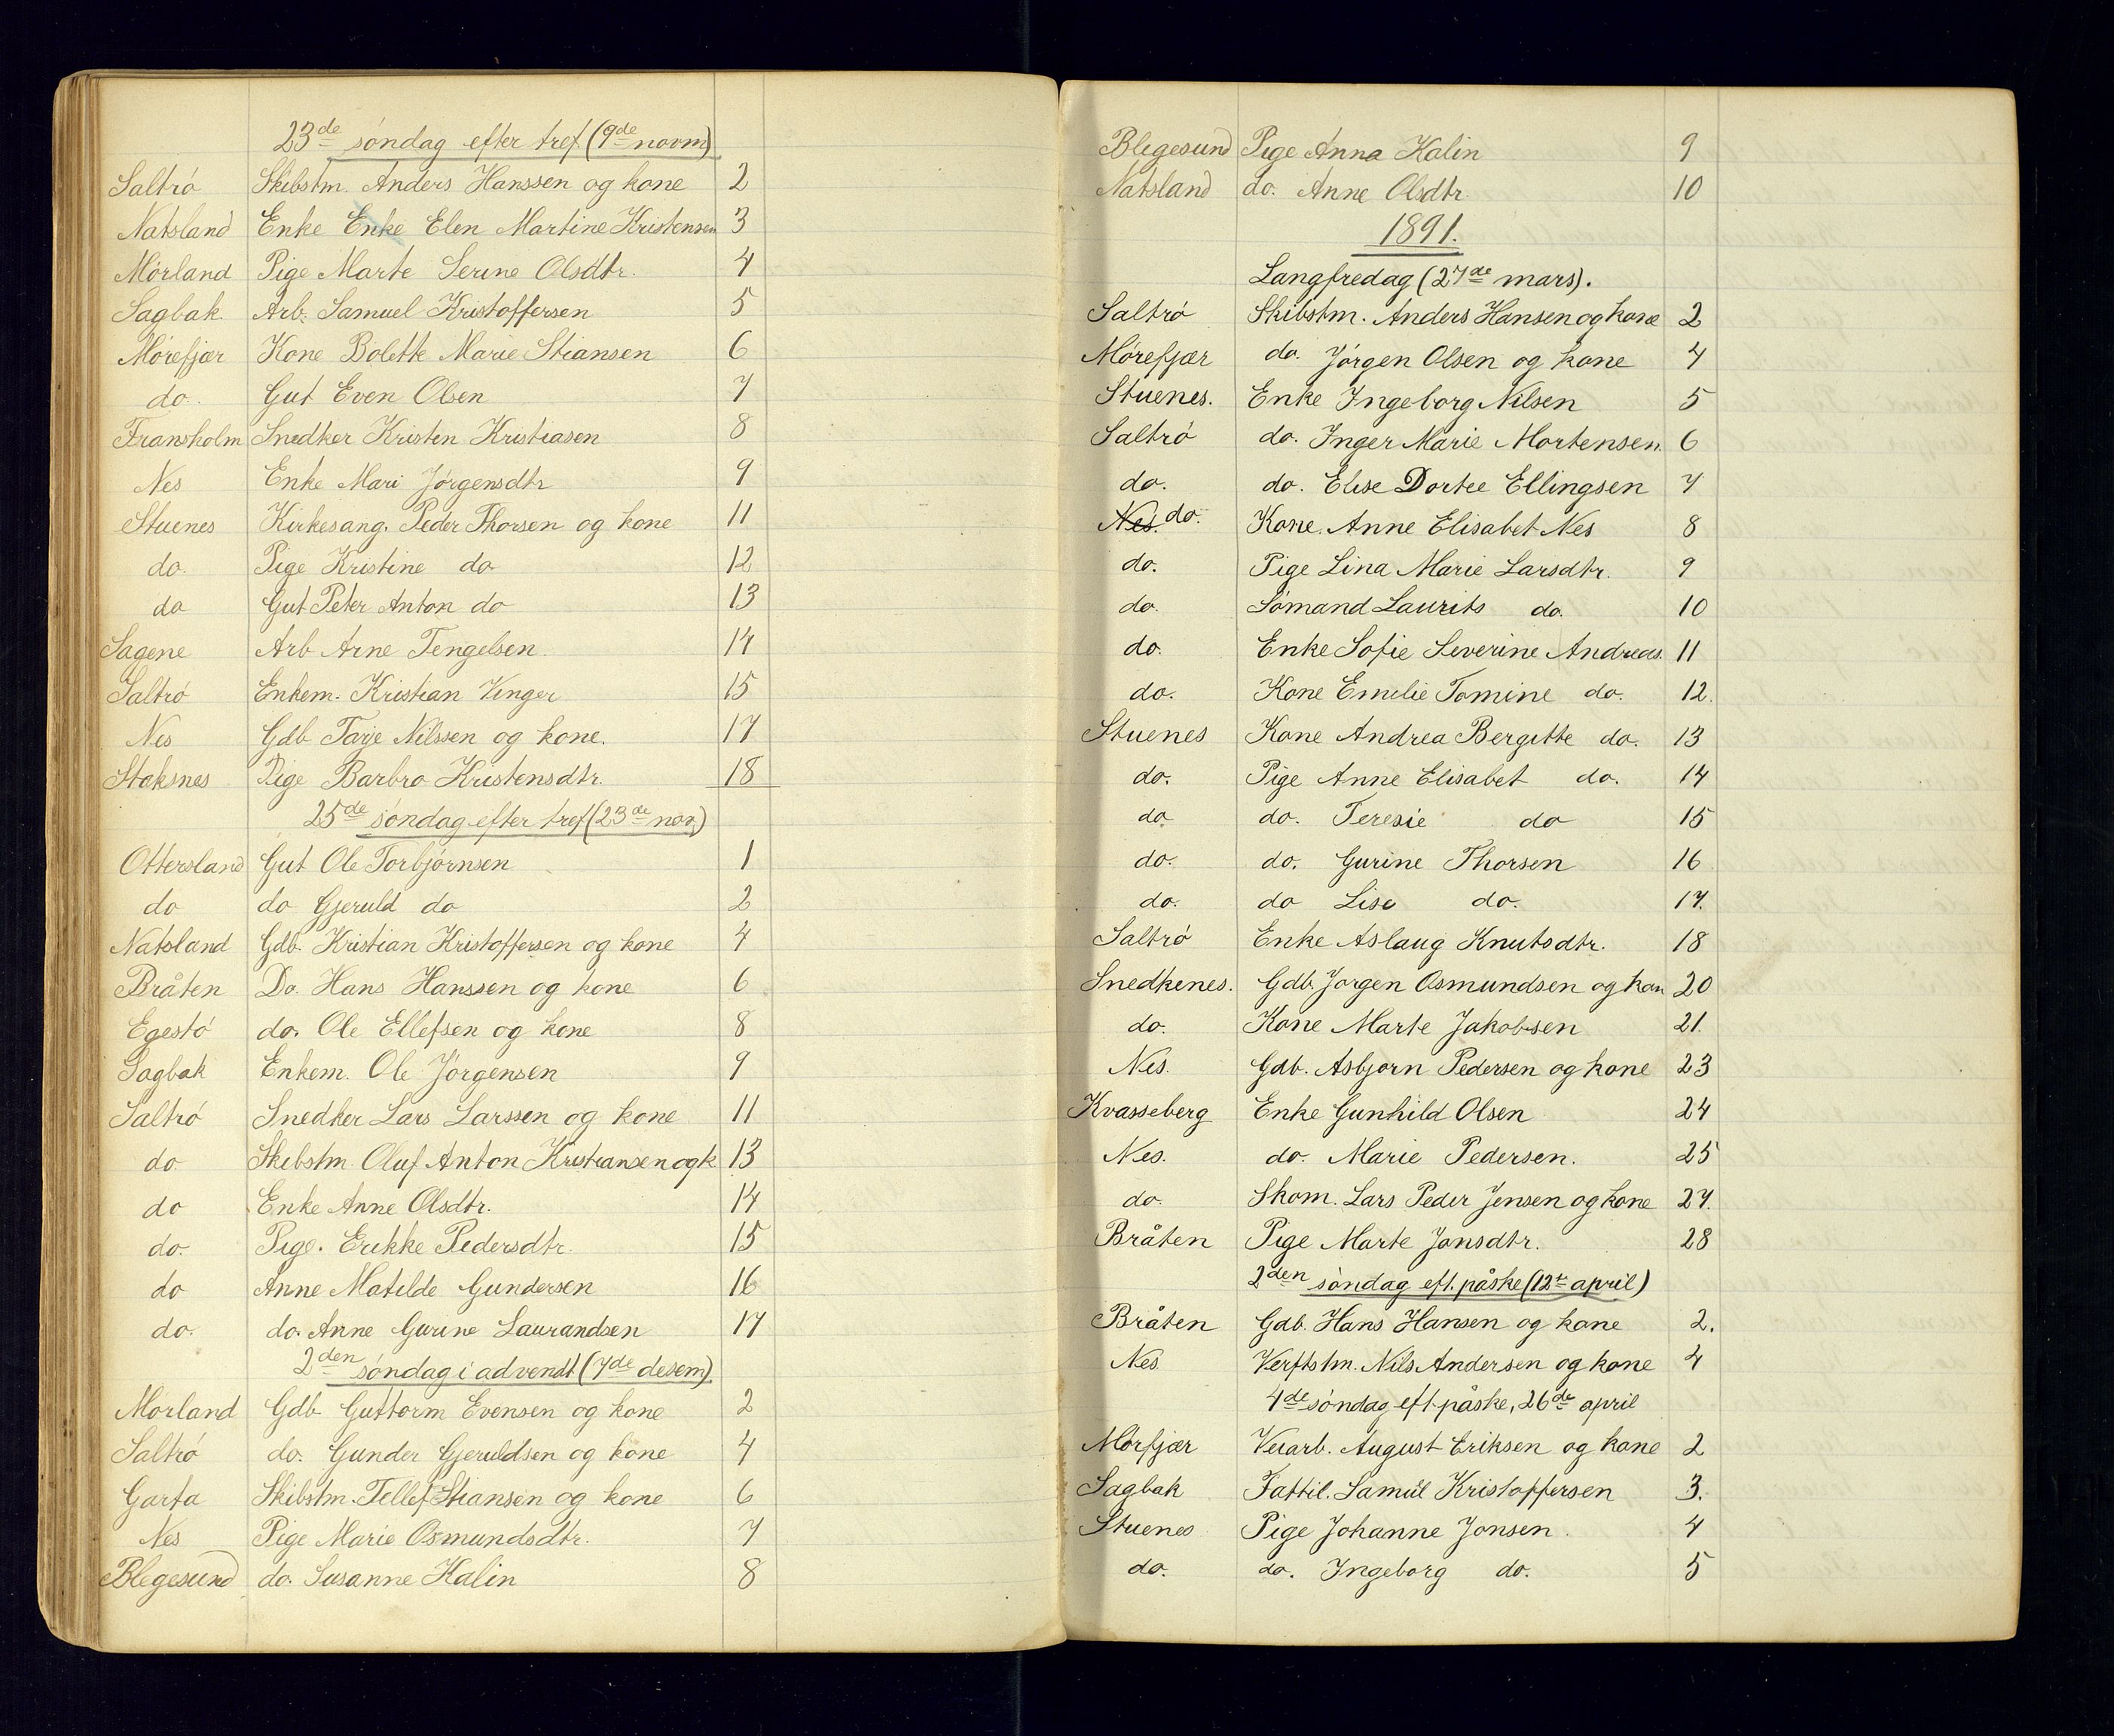 23de søndag efter tref (9de novm)
Saltrø Skibstm. Anders Hanssen og kone 2
Natsland Enke Enke Elen Martine Kristensen 3
Mørland Pige Marte Serine Olsdtr. 4
Sagbak Arb. Samuel Kristoffersen 5
Mørefjær Kone Bolette Marie Stiansen 6
do. Gut Even Olsen 7
Fransholm Snedker Kristen Kristiasen 8
Nes Enke Mari Jørgensdtr 9
Stuenes Kirkesang. Peder Thorsen og kone 11
do. Pige Kristine do 12
do Gut Peter Anton do 13
Sagene Arb Arne Tengelsen 14
Saltrø Enkem. Kristian Vinger 15
Nes Gdb Tarje Nilssen og kone. 17
Staksnes Pige Barbro Kristensdtr. 18
25de søndag efter tref (23de nov.)
Ottersland Gut Ole Torbjørnsen 1
do do Gjeruld do 2
Natsland Gdb. Kristian Kristoffersen og kone 4
Bråten Do. Hans Hanssen og kone 6
Egestø do. Ole Ellefsen og kone 8
Sagbak Enkem. Ole Jørgensen 9
Saltrø Snedker Lars Larssen og kone 11
do Skibstm. Oluf Anton Kristiansen og k 13
do Enke Anne Olsdtr. 14
do. Pige. Erikke Pedersdtr. 15
do Anne Matilde Gundersen 16
do. do. Anne Gurine Laurandsen 17
2den søndag i advendt (7de desem)
Mørland Gdb Guttorm Evensen og kone 2
Saltrø do. Gunder Gjeruldsen og kone 4
Garta Skibstm. Tellef Stiansen og kone 6
Nes Pige Marie Osmundsdtr. 7
Blegesund do. Susanne Kalin 8
Blegesund Pige Anna Kalin 9
Natsland do. Anne Olsdtr. 10
1891.
Langfredag (27de mars).
Saltrø Skibstm. Anders Hansen og kone 2
Mørefjær do. Jørgen Olsen og kone 4
Stuenes. Enke Ingeborg Nilsen 5
Saltrø do. Inger Marie Mortensen. 6
do. do. Elise Dortee Ellingsen 7
Nes. do. Kone. Anne Elisabet Nes 8
do. Pige Lina Marie Larsdtr. 9
do. Sømand Laurits do. 10
do. Enke Sofie Severine Andreas. 11
do. Kone Emilie Tomine do. 12.
Stuenes Kone Andrea Bergitte do. 13
do. Pige Anne Elisabet do. 14
do do. Teresie do 15
do. do. Gurine Thorsen 16
do. do Lise do. 17.
Saltrø Enke Aslaug Knutsdtr. 18
Snedkenes. Gdb. Jørgen Osmundsen og kon 20
do. Kone Marte Jakobsen 21.
Nes. Gdb. Asbjørn Pedersen og kone 23
Kvasseberg Enke Gunhild Olsen 24
Nes. do. Marie Pedersen. 25
do. Skom. Lars Peder Jensen og kone 27.
Bråten Pige Marte Jonsdtr. 28
2den søndag eft. påske (12te april)
Bråten Gdb. Hans Hansen og kone 2.
Nes. Verftstm. Nils Andersen og kone 4
4de søndag eft. påske, 26de april
Mørfjær Veiarb. August Eriksen og kone 2
Sagbak Fattil. Samúl Kristoffersen 3.
Stuenes Pige Johanne Jonsen 4
do. do. Ingeborg do. 5